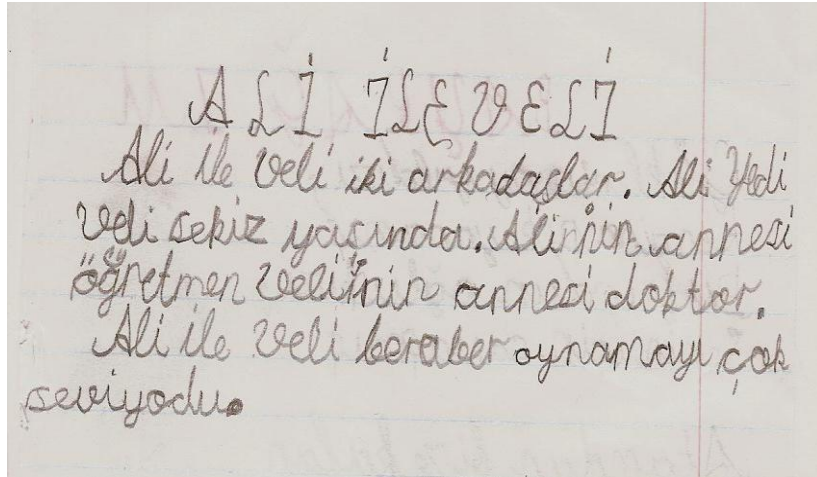 ALİ İLE VELİ
Ali ile Veli iki arkadaşlar. Ali Yedi
Veli sekiz yaşında. Ali'nin annesi
öğretmen Veli'nin annesi doktor.
Ali ile Veli beraber oynamayı çok
seviyodu.